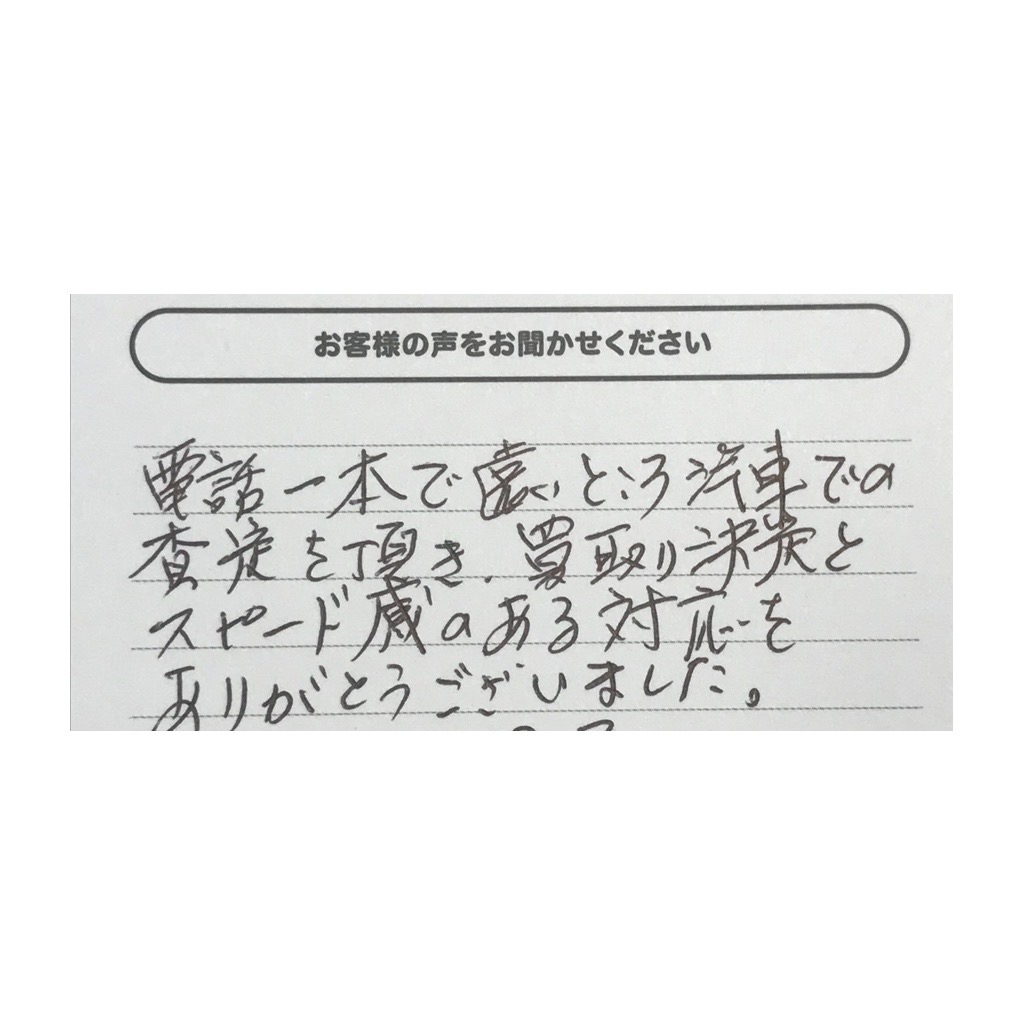 お客様の声をお聞かせください
電話一本で遠いところ汽車での
査定を頂き、買取り決定と
スピード感のある対応を
ありがとうございました。